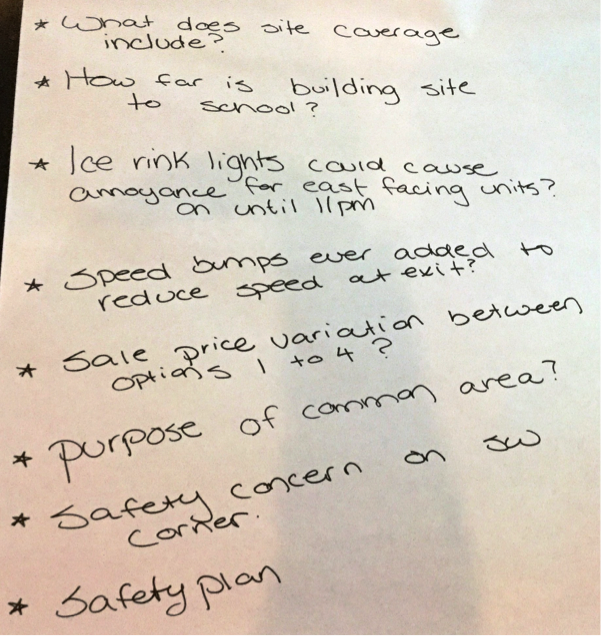 * What does site coverage
include?
* How far is building site
to school?
* Ice rink lights could cause
annoyance for east facing units?
on until 11pm
* Speed bumps ever added to
reduce speed at exit?
* Sale price variation between
options 1 to 4?
* Purpose of common area?
* Safety concern on SW
corner.
* Safety plan